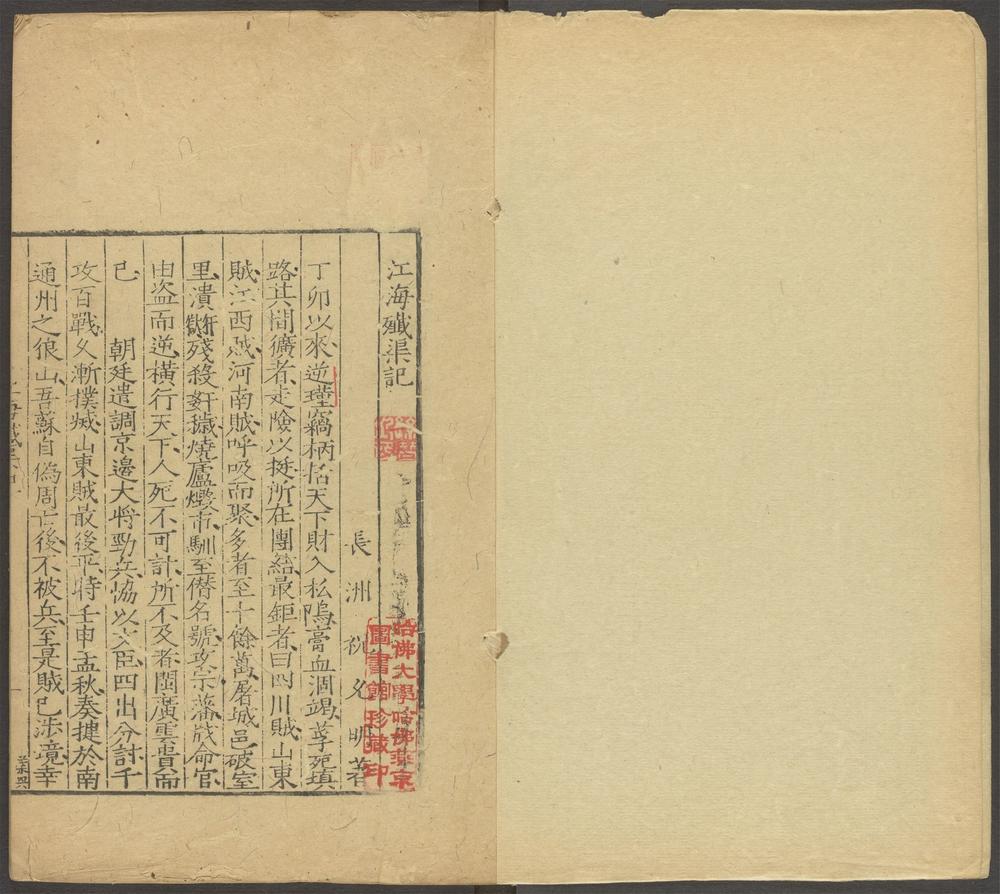 江海殲渠記
長洲祝允明著
丁卯以來逆瑾竊柄括天下財入私塢膏血涸竭莩死填
路其間獷者走險以挺所在團結最鉅者曰四川賊山東
賊江西賊河南賊呼吸而聚多者至十餘萬屠城邑破室
里潰獄殘殺奸穢燒廬爇市馴至僣名號攻宗藩戕命官
由盜而逆橫行天下人死不可計所不及者閩廣雲貴而
已　朝廷遣調京邊大將勁兵協以文臣四出分討千
攻百戰久漸撲滅山東賊最後平時壬申孟秋奏捷於南
通州之狼山吾蘇自偽周亡後不被兵至是賊已涉境幸
哈佛大學哈佛燕京
圖書館珍藏印